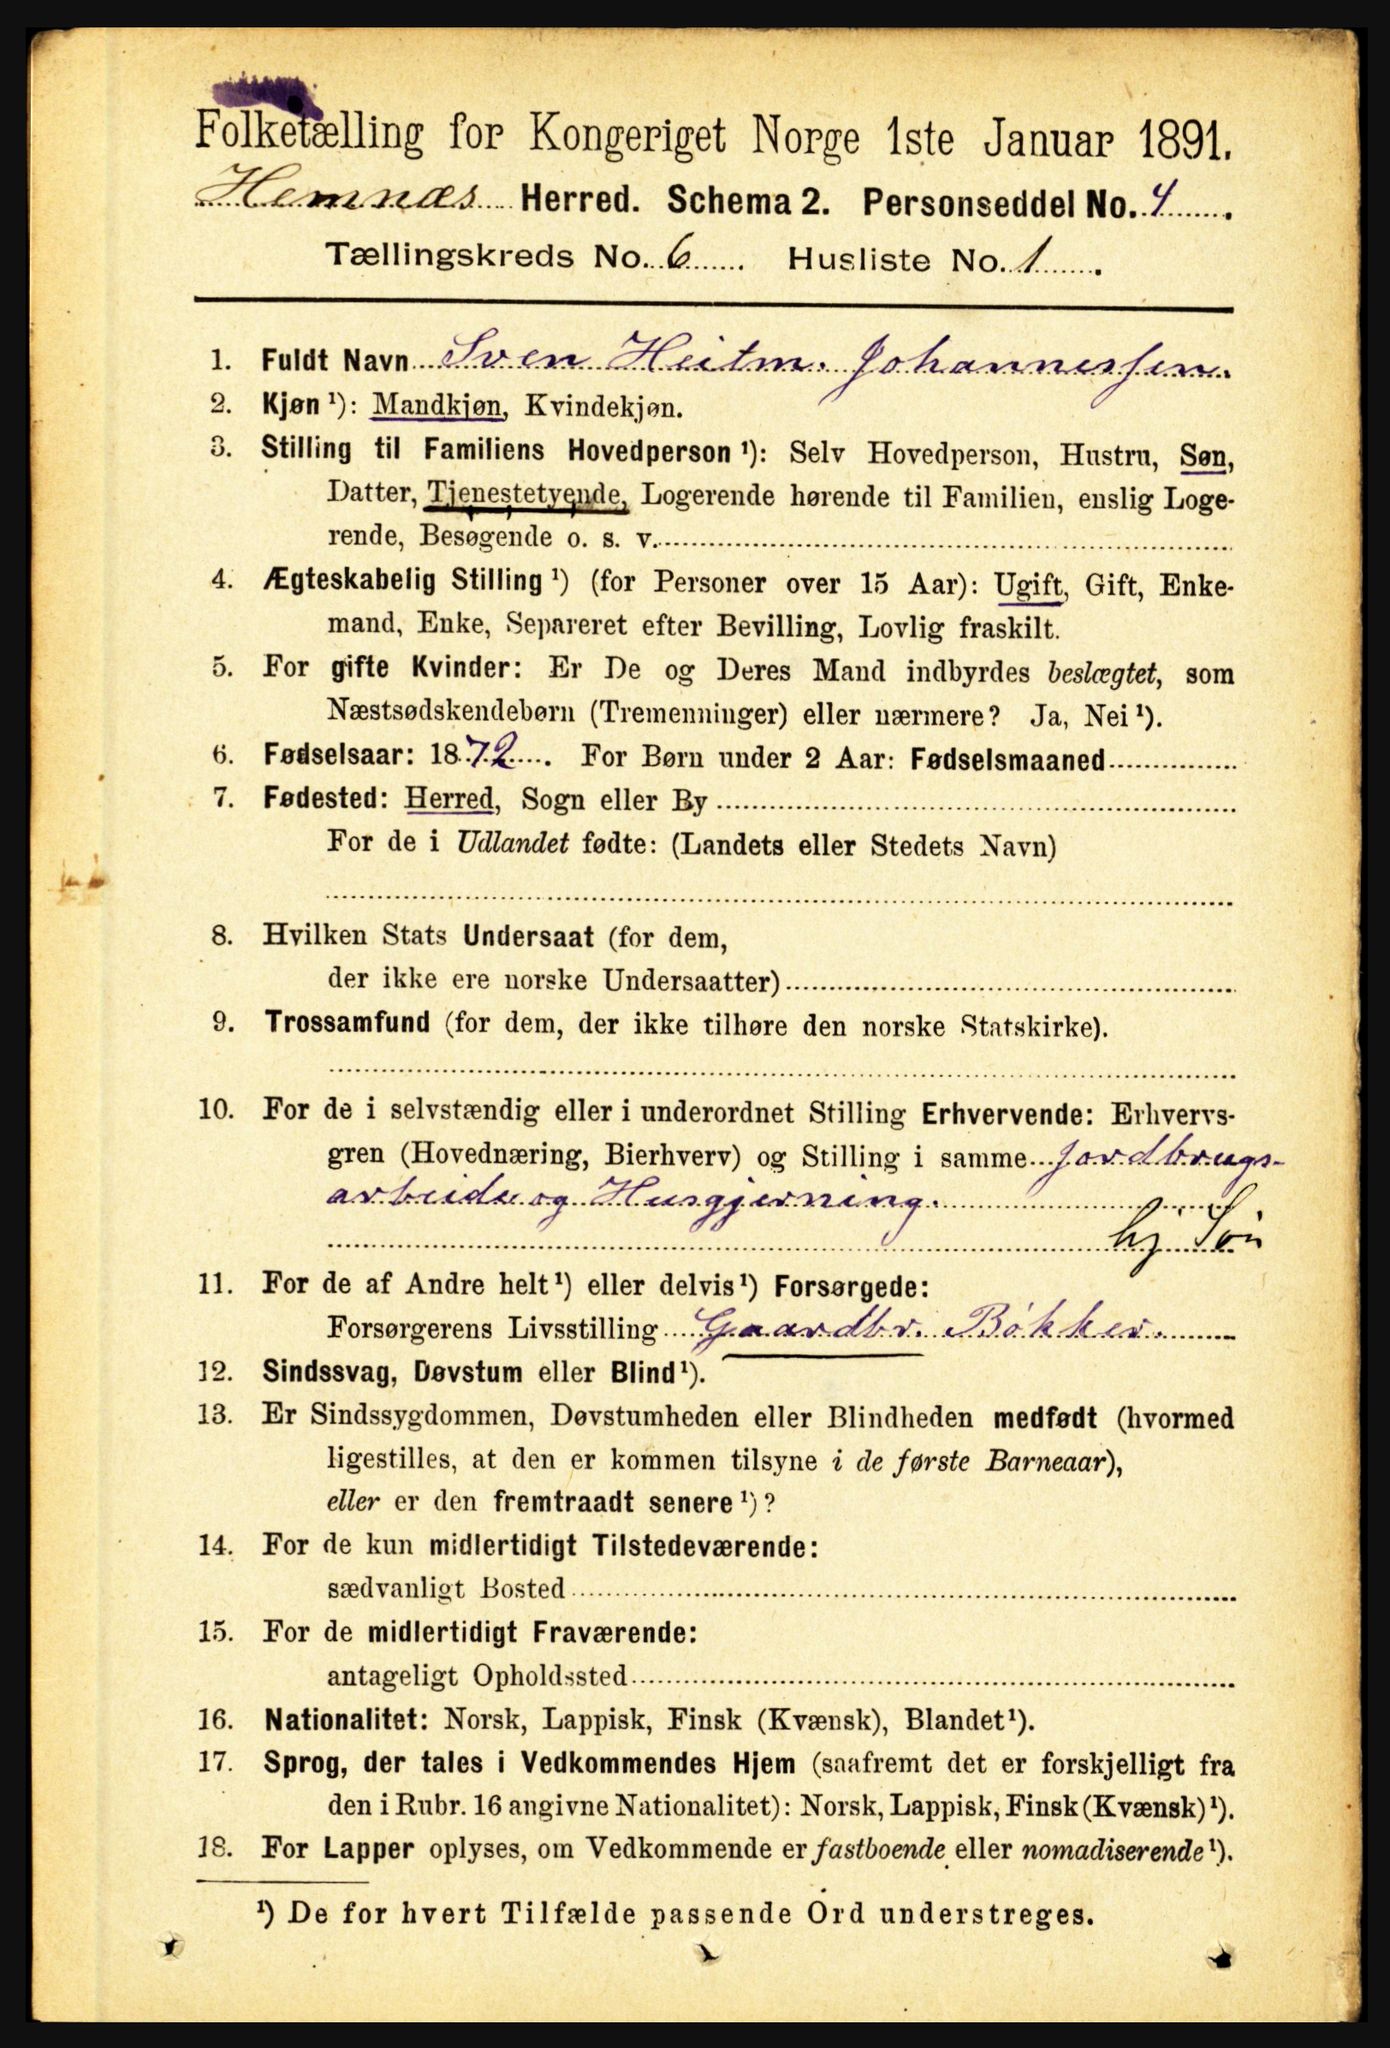 Folketælling for Kongeriget Norge 1ste Januar 1891.
Hemnæs Herred. Schema 2. Personseddel No. 4.
Tællingskreds No. 6. Husliste No. 1.
1. Fuldt Navn Sven Heitm. Johannessen.
2. Kjøn ¹): Mandkjøn, Kvindekjøn.
3. Stilling til Familiens Hovedperson ¹): Selv Hovedperson, Hustru, Søn,
Datter, Tjenestetyende, Logerende hørende til Familien, enslig Loge-
rende, Besøgende o. s. v.
4. Ægteskabelig Stilling ¹) (for Personer over 15 Aar): Ugift, Gift, Enke-
mand, Enke, Separeret efter Bevilling, Lovlig fraskilt.
5. For gifte Kvinder: Er De og Deres Mand indbyrdes beslægtet, som
Næstsødskendebørn (Tremenninger) eller nærmere? Ja, Nei ¹).
6. Fødselsaar: 1872. For Børn under 2 Aar: Fødselsmaaned
7. Fødested: Herred, Sogn eller By
For de i Udlandet fødte: (Landets eller Stedets Navn)
8. Hvilken Stats Undersaat (for dem,
der ikke ere norske Undersaatter)
9. Trossamfund (for dem, der ikke tilhøre den norske Statskirke).
10. For de i selvstændig eller i underordnet Stilling Erhvervende: Erhvervs-
gren (Hovednæring, Bierhverv) og Stilling i samme Jordbrugs-
arbeide og Husgjerning.
hj Søn
11. For de af Andre helt ¹) eller delvis ¹) Forsørgede:
Forsørgerens Livsstilling Gaardbr. Bøkker.
12. Sindssvag, Døvstum eller Blind ¹).
13. Er Sindssygdommen, Døvstumheden eller Blindheden medfødt (hvormed
ligestilles, at den er kommen tilsyne i de første Barneaar),
eller er den fremtraadt senere ¹)?
14. For de kun midlertidigt Tilstedeværende:
sædvanligt Bosted
15. For de midlertidigt Fraværende:
antageligt Opholdssted
16. Nationalitet: Norsk, Lappisk, Finsk (Kvænsk), Blandet ¹).
17. Sprog, der tales i Vedkommendes Hjem (saafremt det er forskjelligt fra
den i Rubr. 16 angivne Nationalitet): Norsk, Lappisk, Finsk (Kvænsk) ¹).
18. For Lapper oplyses, om Vedkommende er fastboende eller nomadiserende ¹).
¹) De for hvert Tilfælde passende Ord understreges.